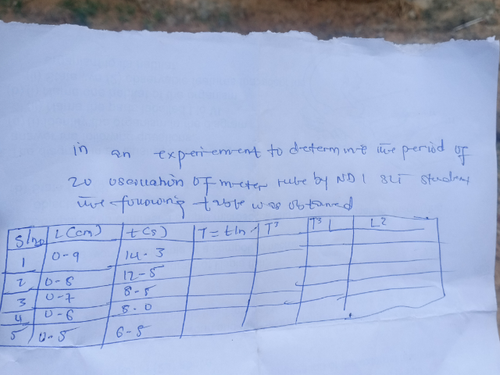 in an experiement to determine the period of
20 oscillation of meter rube by ND1 SLT student
the following table was obtained
S/no L(cm) t(s) T=t/n T² T²L L²
1 0-9 14-3
2 0-8 12-5
3 0-7 8-5
4 0-6 8-0
5 0-5 6-5